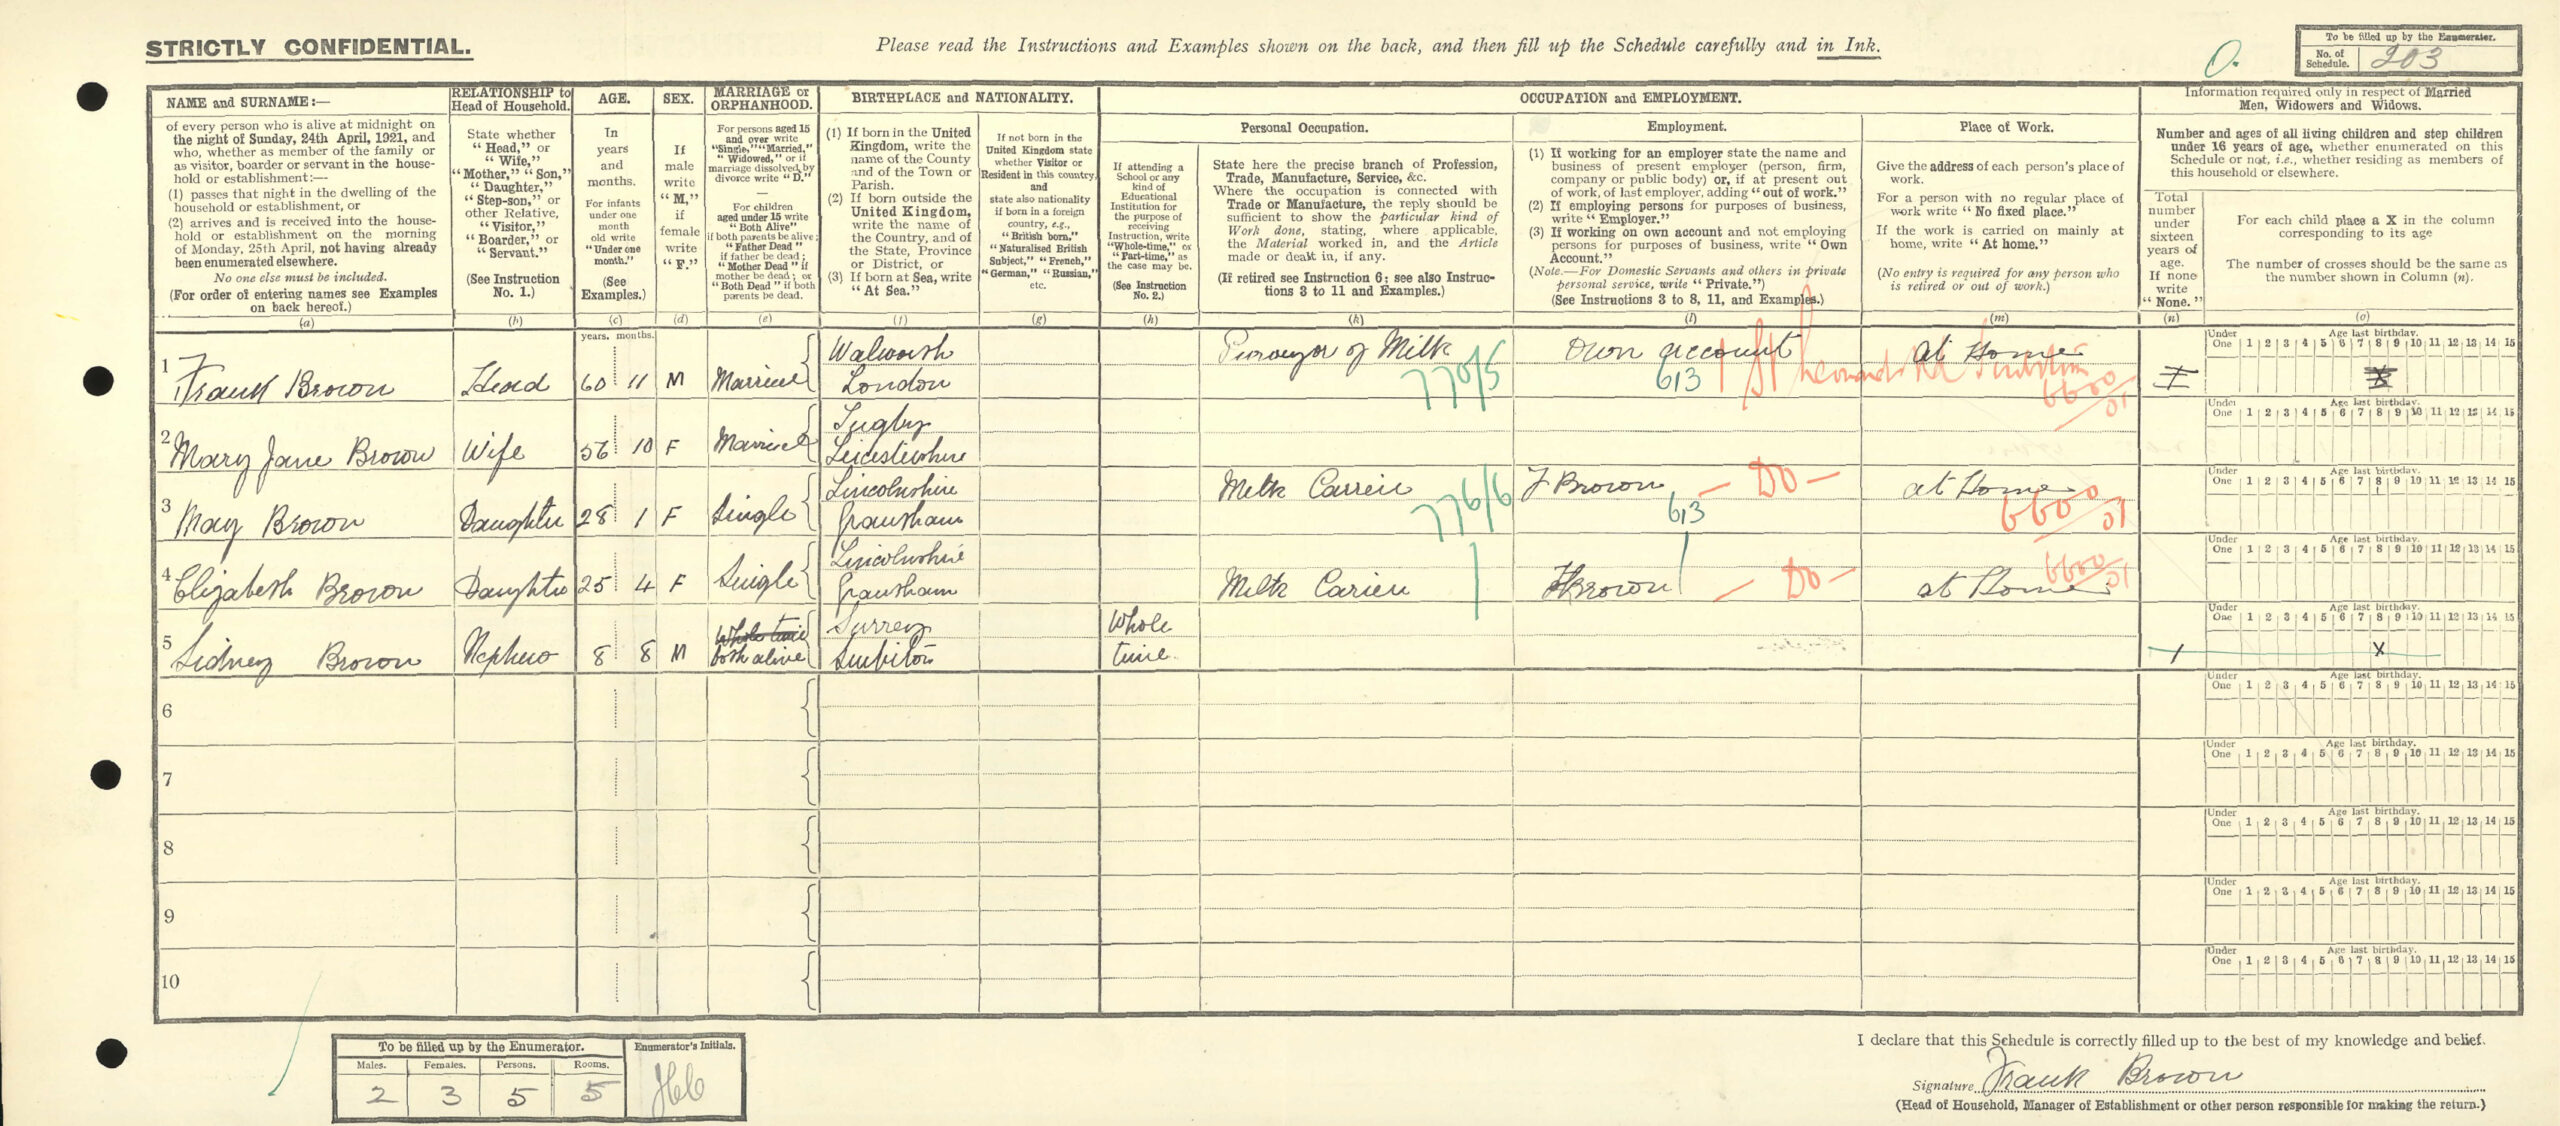 STRICTLY CONFIDENTIAL.
Please read the Instructions and Examples shown on the back, and then fill up the Schedule carefully and in Ink.
To be filled up by the Enumerator.
No. of Schedule. 203
NAME and SURNAME:—
of every person who is alive at midnight on
the night of Sunday, 24th April, 1921, and
who, whether as member of the family or
as visitor, boarder or servant in the house-
hold or establishment:—
(1) passes that night in the dwelling of the
household or establishment, or
(2) arrives and is received into the house-
hold or establishment on the morning
of Monday, 25th April, not having already
been enumerated elsewhere.
No one else must be included.
(For order of entering names see Examples
on back hereof.)
(a)
RELATIONSHIP to
Head of Household.
State whether
"Head," or
"Wife,"
"Mother," "Son,"
"Daughter,"
"Step-son," or
other Relative,
"Visitor,"
"Boarder," or
"Servant."
(See Instruction
No. 1.)
(b)
AGE.
In
years
and
months.
For infants
under one
month
old write
"Under one
month."
(See
Examples.)
(c)
SEX.
If
male
write
"M,"
if
female
write
"F."
(d)
MARRIAGE or
ORPHANHOOD.
For persons aged 15
and over write
"Single," "Married,"
"Widowed," or if
marriage dissolved by
divorce write "D."
For children
aged under 15 write
"Both Alive"
if both parents be alive;
"Father Dead"
if father be dead;
"Mother Dead" if
mother be dead; or
"Both Dead" if both
parents be dead.
(e)
BIRTHPLACE and NATIONALITY.
(1) If born in the United
Kingdom, write the
name of the County
and of the Town or
Parish.
(2) If born outside the
United Kingdom,
write the name of
the Country, and of
the State, Province
or District, or
(3) If born at Sea, write
"At Sea."
(f)
If not born in the
United Kingdom state
whether Visitor or
Resident in this country,
and
state also nationality
if born in a foreign
country, e.g.,
"British born,"
"Naturalised British
Subject," "French,"
"German," "Russian,"
etc.
(g)
OCCUPATION and EMPLOYMENT.
If attending a
School or any
kind of
Educational
Institution for
the purpose of
receiving
Instruction, write
"Whole-time," or
"Part-time," as
the case may be.
(See Instruction
No. 2.)
(h)
Personal Occupation.
State here the precise branch of Profession,
Trade, Manufacture, Service, &c.
Where the occupation is connected with
Trade or Manufacture, the reply should be
sufficient to show the particular kind of
Work done, stating, where applicable,
the Material worked in, and the Article
made or dealt in, if any.
(If retired see Instruction 6; see also Instruc-
tions 3 to 11 and Examples.)
(k)
Employment.
(1) If working for an employer state the name and
business of present employer (person, firm,
company or public body) or, if at present out
of work, of last employer, adding "out of work."
(2) If employing persons for purposes of business,
write "Employer."
(3) If working on own account and not employing
persons for purposes of business, write "Own
Account."
(Note.—For Domestic Servants and others in private
personal service, write "Private.")
(See Instructions 3 to 8, 11, and Examples.)
(l)
Place of Work.
Give the address of each person's place of
work.
For a person with no regular place of
work write "No fixed place."
If the work is carried on mainly at
home, write "At home."
(No entry is required for any person who
is retired or out of work.)
(m)
Information required only in respect of Married
Men, Widowers and Widows.
Number and ages of all living children and step children
under 16 years of age, whether enumerated on this
Schedule or not, i.e., whether residing as members of
this household or elsewhere.
Total
number
under
sixteen
years of
age.
If none
write
"None."
(n)
For each child place a X in the column
corresponding to its age
The number of crosses should be the same as
the number shown in Column (n).
(o)
years. months.
1 Frank Brown Head 60 11 M Married Walworth London Purveyor of Milk 770/5 Own account 613 at Home 6600/01
Under One Age last birthday. 1 2 3 4 5 6 7 8 9 10 11 12 13 14 15
2 Mary Jane Brown Wife 56 10 F Married Tugby Leicestershire
Under One Age last birthday. 1 2 3 4 5 6 7 8 9 10 11 12 13 14 15
3 May Brown Daughter 28 1 F Single Lincolnshire Grantham Milk Carrier 776/6 F Brown 613 — Do — at Home 6600/01
Under One Age last birthday. 1 2 3 4 5 6 7 8 9 10 11 12 13 14 15
4 Elizabeth Brown Daughter 25 4 F Single Lincolnshire Grantham Milk Carier F Brown — Do — at Home 6600/01
Under One Age last birthday. 1 2 3 4 5 6 7 8 9 10 11 12 13 14 15
5 Sidney Brown Nephew 8 8 M Whole time both alive Surrey Surbiton Whole time 1 X
Under One Age last birthday. 1 2 3 4 5 6 7 8 9 10 11 12 13 14 15
6
Under One Age last birthday. 1 2 3 4 5 6 7 8 9 10 11 12 13 14 15
7
Under One Age last birthday. 1 2 3 4 5 6 7 8 9 10 11 12 13 14 15
8
Under One Age last birthday. 1 2 3 4 5 6 7 8 9 10 11 12 13 14 15
9
Under One Age last birthday. 1 2 3 4 5 6 7 8 9 10 11 12 13 14 15
10
Under One Age last birthday. 1 2 3 4 5 6 7 8 9 10 11 12 13 14 15
To be filled up by the Enumerator.
Males. Females. Persons. Rooms.
2 3 5 5
Enumerator's Initials.
I declare that this Schedule is correctly filled up to the best of my knowledge and belief.
Signature Frank Brown
(Head of Household, Manager of Establishment or other person responsible for making the return.)